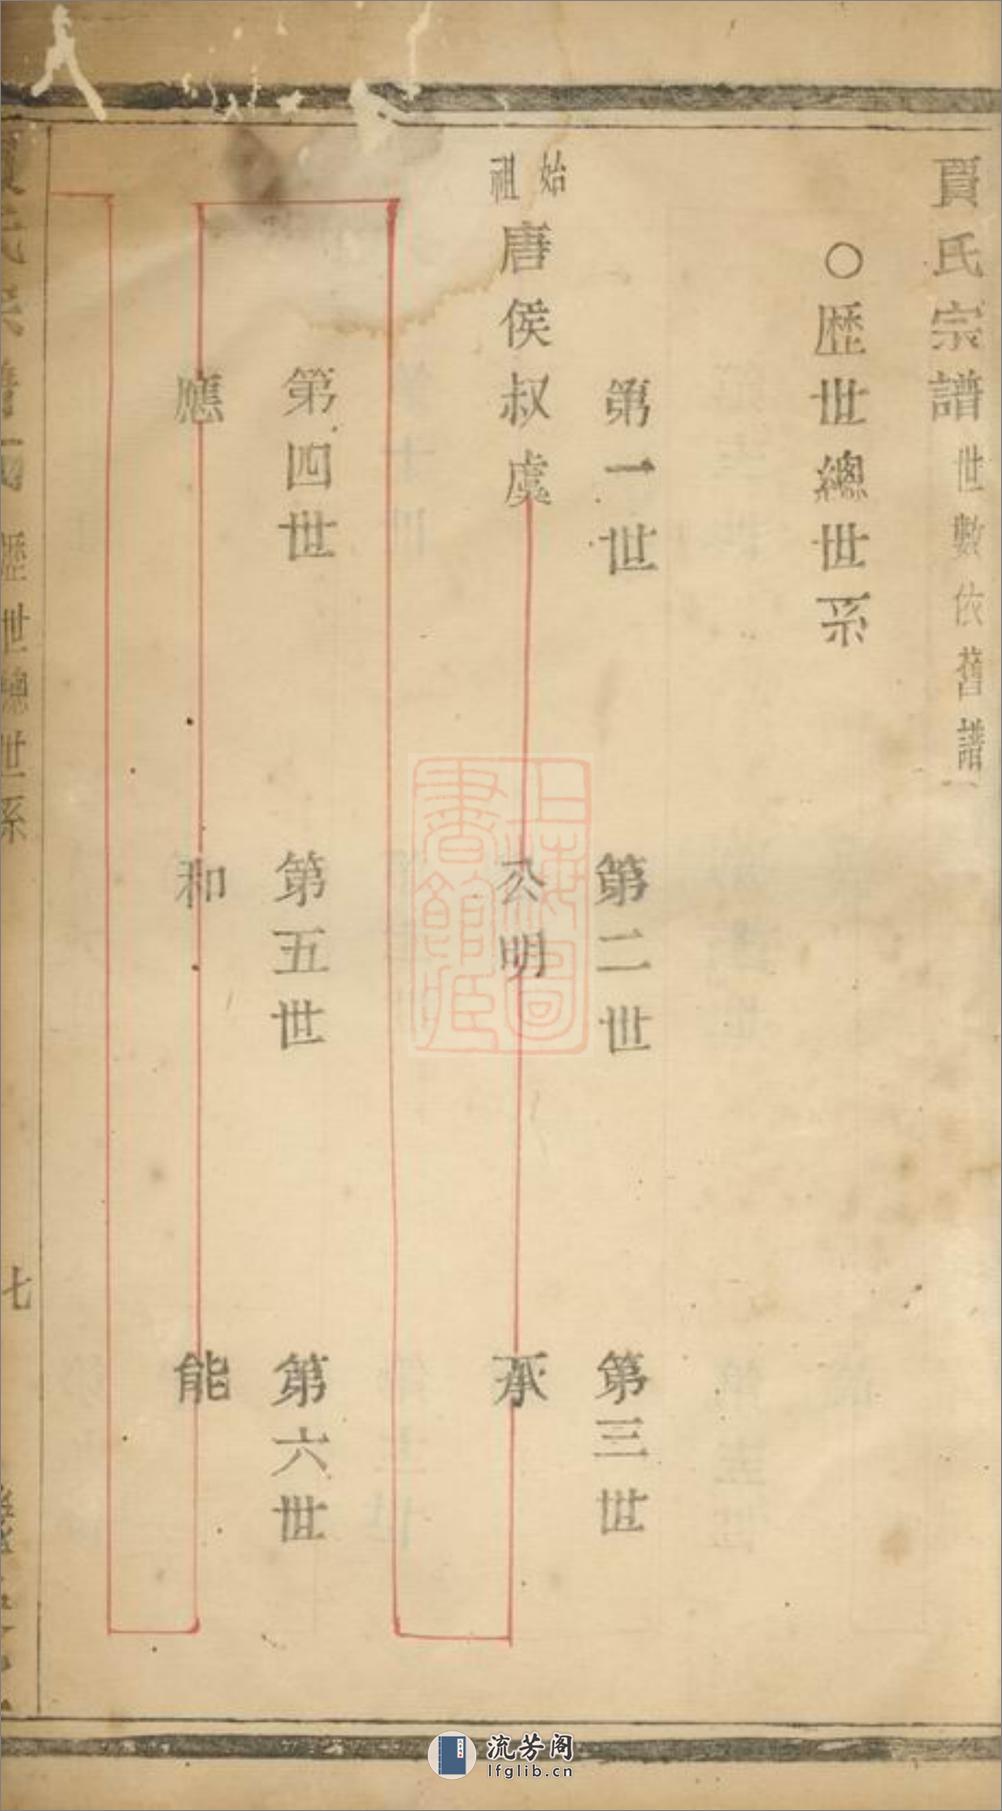 賈氏宗譜 世數依舊譜
○歷世總世系
第一世 第二世 第三世
始祖 唐侯叔虞 公明 承
第四世 第五世 第六世
應 和 能
歷世總世系 七
上海圖書館藏
流芳阁
lfglib.cn